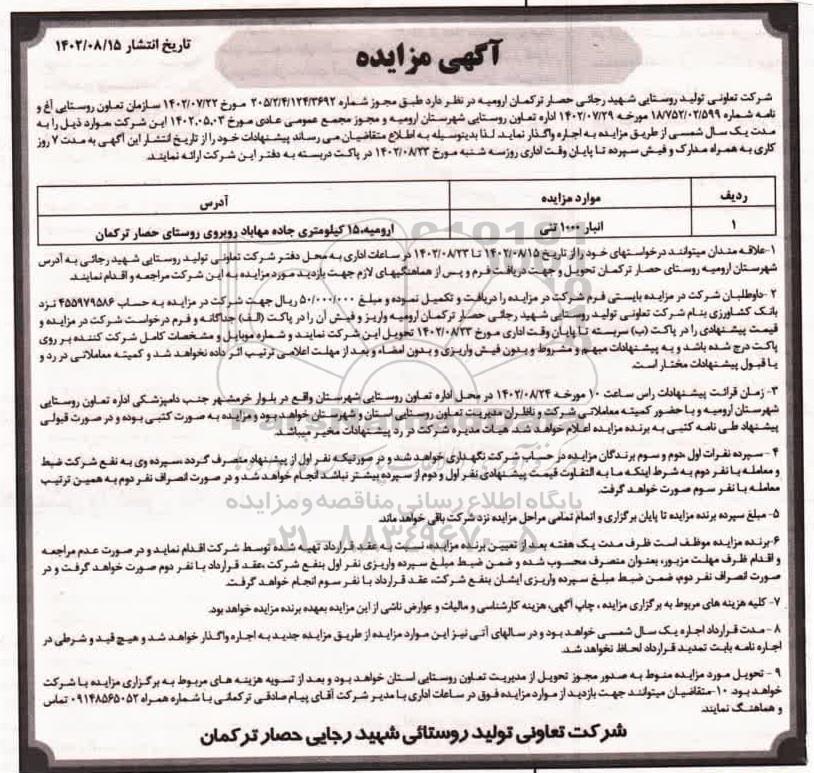 تاریخ انتشار ۱۴۰۲/۰۸/۱۵
آگهی مزایده
شرکت تعاونی تولید روستایی شهید رجائی حصار ترکمان ارومیه در نظر دارد طبق مجوز شماره ۲۰۵/۲/۴/۱۲۴/۳۶۹۲ مورخ ۱۴۰۲/۰۷/۲۲ سازمان تعاون روستایی آ‌غ و
نامه شماره ۱۸/۷۵۲/۰۲/۵۹۹ مورخه ۱۴۰۲/۰۷/۲۹ اداره تعاون روستایی شهرستان ارومیه و مجوز مجمع عمومی عادی مورخ ۱۴۰۲.۰۵.۰۳ این شرکت موارد ذیل را به
مدت یک سال شمسی از طریق مزایده به اجاره واگذار نماید لذا بدینوسیله به اطلاع متقاضیان می رساند پیشنهادات خود را از تاریخ انتشار این آگهی به مدت ۷ روز
کاری به همراه مدارک و فیش سپرده تا پایان وقت اداری روز سه شنبه مورخ ۱۴۰۲/۰۸/۲۳ در پاکت دربسته به دفتر این شرکت ارائه نمایند.
ردیف موارد مزایده آدرس
۱ انبار ۱۰۰۰ تنی ارومیه،۱۵ کیلومتری جاده مهاباد روبروی روستای حصار ترکمان
۱-علاقه مندان میتوانند درخواستهای خود را از تاریخ ۱۴۰۲/۰۸/۱۵ تا ۱۴۰۲/۰۸/۲۳ در ساعات اداری به محل دفتر شرکت تعاونی تولید روستایی شهید رجائی به آدرس
شهرستان ارومیه روستای حصار ترکمان تحویل و جهت دریافت فرم و پس از هماهنگیهای لازم جهت بازدید مورد مزایده به این شرکت مراجعه و اقدام نمایند.
۲-داوطلبان شرکت در مزایده بایستی فرم شرکت در مزایده را دریافت و تکمیل نموده و مبلغ ۵۰/۰۰۰/۰۰۰ ریال جهت شرکت در مزایده به حساب ۴۵۵۹۷۹۵۸۶ نزد
بانک کشاورزی بنام شرکت تعاونی تولید روستایی شهید رجائی حصار ترکمان ارومیه واریز و فیش آن را در پاکت (الف) جداگانه و فرم درخواست شرکت در مزایده و
قیمت پیشنهادی را در پاکت (ب) سربسته تا پایان وقت اداری مورخ ۱۴۰۲/۰۸/۲۳ تحویل این شرکت نمایند و شماره موبایل و مشخصات کامل شرکت کننده بر روی
پاکت درج شده باشد و به پیشنهادات مبهم و مشروط و بدون فیش واریزی و بدون امضاء و بعد از مهلت اعلامی ترتیب اثر داده نخواهد شد و کمیته معاملاتی در رد و
یا قبول پیشنهادات مختار است.
۳- زمان قرائت پیشنهادات راس ساعت ۱۰ مورخه ۱۴۰۲/۰۸/۲۴ در محل اداره تعاون روستایی شهرستان واقع در بلوار خرمشهر جنب دامپزشکی اداره تعاون روستایی
شهرستان ارومیه و با حضور کمیته معاملاتی شرکت و ناظران مدیریت تعاون روستایی استان و شهرستان خواهد بود و مزایده به صورت کتبی بوده و در صورت قبولی
پیشنهاد طی نامه کتبی به برنده مزایده اعلام خواهد شد. هیات مدیره شرکت در رد پیشنهادات مخیر میباشد.
۴ - سپرده نفرات اول ،دوم و سوم برندگان مزایده در حساب شرکت نگهداری خواهد شد و در صورتیکه نفر اول از پیشنهاد منصرف گردد ،سپرده وی به نفع شرکت ضبط
و معامله با نفر دوم به شرط اینکه ما به التفاوت قیمت پیشنهادی نفر اول و دوم از سپرده بیشتر نباشد انجام خواهد شد و در صورت انصراف نفر دوم به همین ترتیب
معامله با نفر سوم صورت خواهد گرفت.
۵- مبلغ سپرده برنده مزایده تا پایان برگزاری و اتمام تمامی مراحل مزایده نزد شرکت باقی خواهد ماند.
۶-برنده مزایده موظف است ظرف مدت یک هفته بعد از تعیین برنده مزایده، نسبت به عقد قرارداد تهیه شده توسط شرکت اقدام نماید و در صورت عدم مراجعه
و اقدام ظرف مهلت مزبور، بعنوان منصرف محسوب شده و ضمن ضبط مبلغ سپرده واریزی نفر اول بنفع شرکت ،عقد قرارداد با نفر دوم صورت خواهد گرفت و در
صورت انصراف نفر دوم، ضمن ضبط مبلغ سپرده واریزی ایشان بنفع شرکت، عقد قرارداد با نفر سوم انجام خواهد گرفت.
۷- کلیه هزینه های مربوط به برگزاری مزایده ، چاپ آگهی، هزینه کارشناسی و مالیات و عوارض ناشی از این مزایده بعهده برنده مزایده خواهد بود.
۸- مدت قرارداد اجاره یک سال شمسی خواهد بود و در سالهای آتی نیز این موارد مزایده از طریق مزایده جدید به اجاره واگذار خواهد شد و هیچ قید و شرطی در
اجاره نامه بابت تمدید قرارداد لحاظ نخواهد شد.
۹ - تحویل مورد مزایده منوط به صدور مجوز تحویل از مدیریت تعاون روستایی استان خواهد بود و بعد از تسویه هزینه های مربوط به برگزاری مزایده با شرکت
خواهد بود. ۱۰-متقاضیان میتوانند جهت بازدید از موارد مزایده فوق در ساعات اداری با مدیر شرکت آقای پیام صادقی ترکمانی با شماره همراه ۰۹۱۴۸۵۶۵۰۵۲ تماس
و هماهنگ نمایند.
شرکت تعاونی تولید روستائی شهید رجایی حصار ترکمان
پایگاه اطلاع رسانی مناقصه و مزایده
۰۲۱-۸۸۳۴۹۶۷۰-۵